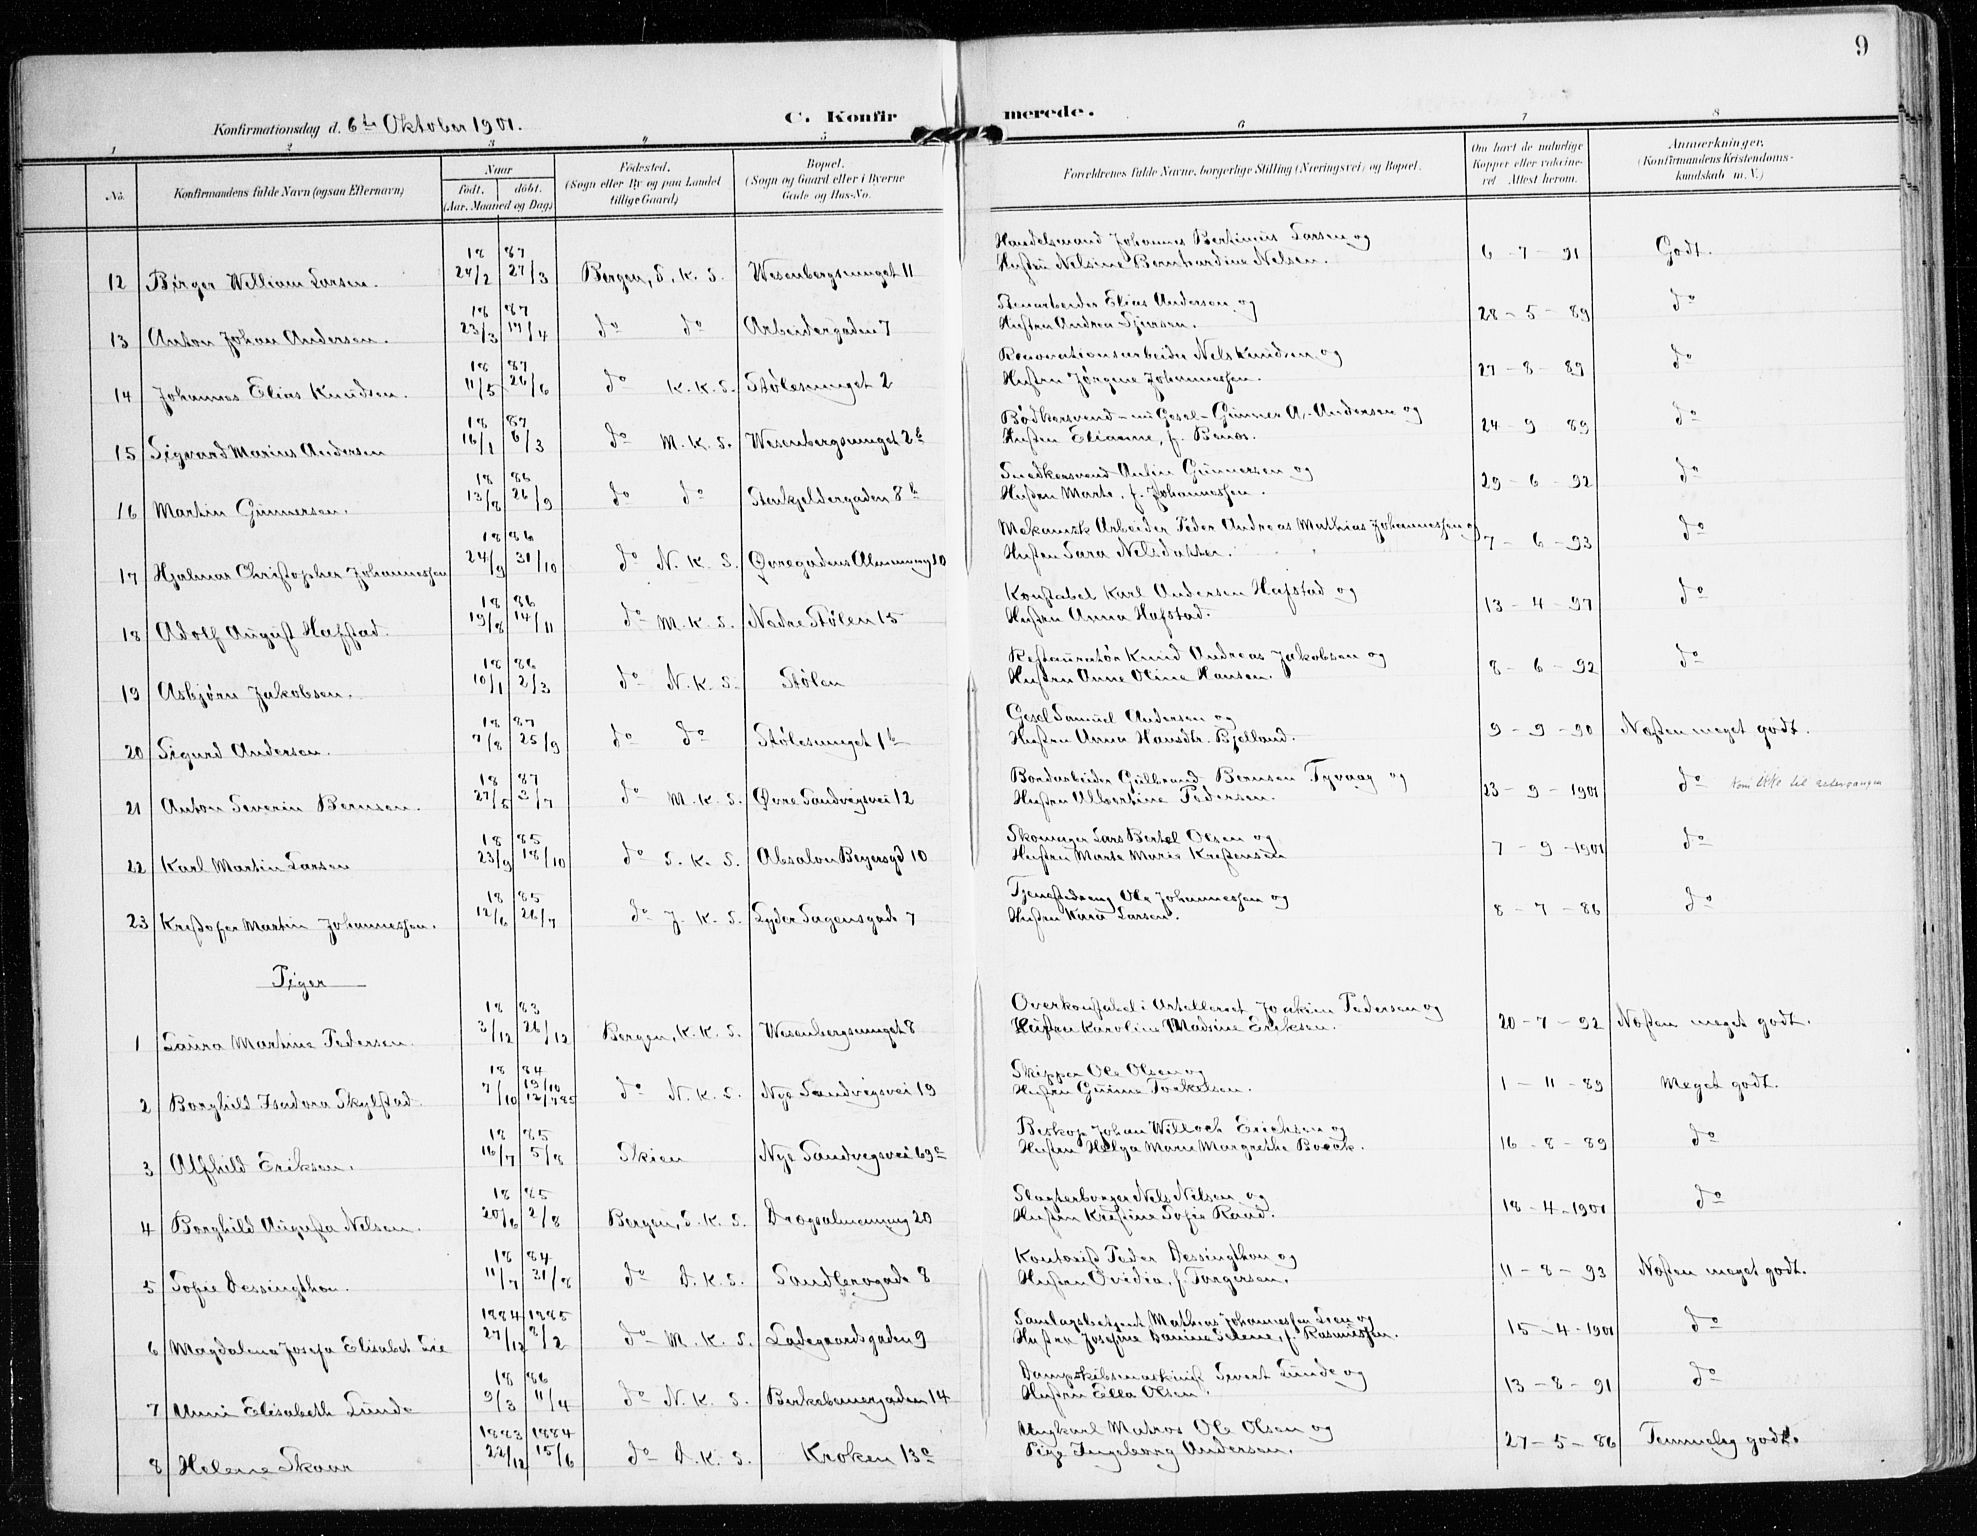 9
Konfirmationsdag d. 6te Oktober 1901.
C. Konfirmerede.
1 2 3 4 5 6 7 8
No.
Konfirmandens fulde Navn (ogsaa Efternavn)
Naar
født. døbt.
(Aar, Maaned og Dag)
Fødested.
(Sogn eller By og paa Landet
tillige Gaard)
Bopæl.
(Sogn og Gaard eller i Byerne
Gade og Hus-No.
Forældrenes fulde Navne, borgerlige Stilling (Næringsvei) og Bopæl.
Om havt de naturlige
Kopper eller vaccine-
ret Attest herom.
Anmærkninger.
(Konfirmandens Kristendoms-
kundskab m. V.)
18 87
12 Birger William Larsen. 24/2 27/3 Bergen, S. K. S. Wesenbergsmuget 11
Handelsmand Johannes Bertinius Larsen og
Hustru Nelsine Bernhardine Nelsen. 6-7-91 Godt.
18 87
13 Anton Johan Andersen. 23/3 17/4 do do Arbeidergaden 7
Stenarbeider Elias Andersen og
Hustru Andrea Sjursen. 28-5-89 do
18 87
14 Johannes Elias Knudsen. 11/5 26/6 do K. K. S. Stølesmuget 2
Renovationsarbeider Nels Knudsen og
Hustru Jørgine Johannessen. 27-8-89 do
18 87
15 Sigvard Marius Andersen 16/1 6/3 do M. K. S. Wesenbergsmuget 2b
Bødkersvend - nu Gesel - Gunner A. Andersen og
Hustru Elianne, f. 24-9-89 do
18 86
16 Martin Gunnersen. 13/8 26/9 do do Stenkjeldergaden 8b
Snedkersvend Antin Gunnersen og
Hustru Marte, f. Johannessen. 29-6-92 do
18 86
17 Hjalmar Christopher Johannessen 24/9 31/10 do N. K. S. Øvregadens Almenning 10
Mekanisk Arbeider Peder Andreas Mathias Johannessen og
Hustru Sara Nelsdatter. 7-6-93 do
18 86
18 Adolf August Hafstad. 19/8 14/11 do M. K. S. Nedre Stølen 15
Konstabel Karl Andersen Hafstad og
Hustru Anna Hafstad. 13-4-97 do
18 86
19 Asbjørn Jakobsen. 10/1 2/3 do N. K. S. Stølen
Restauratør Knud Andreas Jakobsen og
Hustru Anne Oline Hansen. 8-6-92 do
18 87
20 Sigurd Andersen. 7/8 25/9 do do Stølesmuget 1b
Gesel Samuel Andersen og
Hustru Anna Hansdtr. Bjelland. 9-9-90 Næsten meget godt.
18 87
21 Anton Severin Bernsen. 27/5 3/7 do M. K. S. Øvre Sandvigsvei 12
Bordarbeider Gulbrand Bernsen Tyvaag og
Hustru Albertine Pedersen. 23-9-1901 do Kom ikke til
18 85
22 Karl Martin Larsen 23/9 18/10 do S. K. S. Absalon Beyersgd 10
Skomager Lars Bertel Olsen og
Hustru Marte Marie Kristensen 7-9-1901 do
18 85
23 Kristofer Martin Johannessen. 12/6 26/7 do J. K. S. Lyder Sagensgade 7
Tjenestedreng Ole Johannessen og
Hustru Kari Larsen. 8-7-86 do
Piger
18 83
1 Laura Martine Pedersen. 3/12 26/12 Bergen, K. K. S. Wesenbergsmuget 8
Overkonstabel i Artelleriet Joakim Pedersen og
Hustru Karoline Madsine Eriksen. 20-7-92 Næsten meget godt.
18 84
2 Borghild Isadora Skylstad. 7/10 19/10 12/7 85 do N. K. S. Nye Sandvigsvei 19
Skipper Ole Olsen og
Hustru Guine Torkelsen. 1-11-89 Meget godt.
18 85
3 Alfhild Eriksen. 16/7 5/8 Skien Nye Sandvigsvei 63a
Biskop Johan Willoch Erichsen og
Hustru Helga Marie Margrethe Boeck. 16-8-89 do
18 85
4 Borghild Augusta Nilsen. 20/6 2/8 Bergen, S. K. S. Dregsalmenning 20
Slagterborger Nels Nilsen og
Hustru Kristine Sofie Raad. 18-4-1901 do
18 84
5 Sofie Dessingthon. 11/7 31/8 do D. K. S. Sandbrogade 8
Kontorist Peder Dessingthon og
Hustru Ovidia, f. Torgersen. 11-8-93 Næsten meget godt.
1884 1885
6 Magdalena Josefa Elisabet Lie 27/12 8/2 do M. K. S. Ladegaardsgaden 9
Samlagsbetjent Mathias Johannessen Lien og
Hustru Josefine Danine Selene, f. Rasmussen. 15-4-1901 do
18 86
7 Unni Elisabeth Lunde 9/3 11/4 do N. K. S. Birkebeinergaden 14
Dampskibsmaskinist Sivert Lunde og
Hustru Ella Olsen. 13-8-91 do
1883 1884
8 Helene Skaar 22/12 15/6 do D. K. S. Kroken 13a
Ungkarl Matros Ole Olsen og
Pige Ingeborg Andersen. 27-5-86 Temmelig godt.